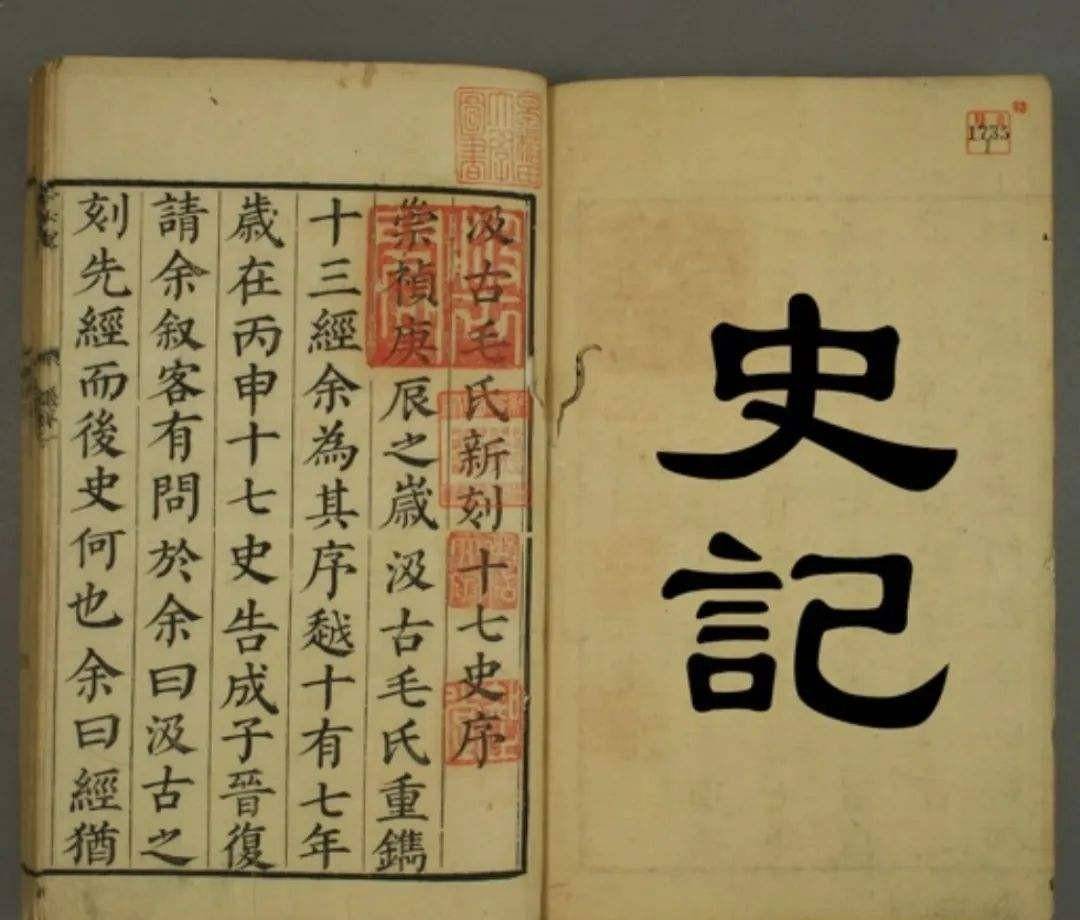 史記
1735
汲古毛氏新刻十七史序
崇禎庚辰之嵗汲古毛氏重鐫
十三經余為其序越十有七年
歲在丙申十七史告成子晉復
請余叙客有問於余曰汲古之
刻先經而後史何也余曰經猶